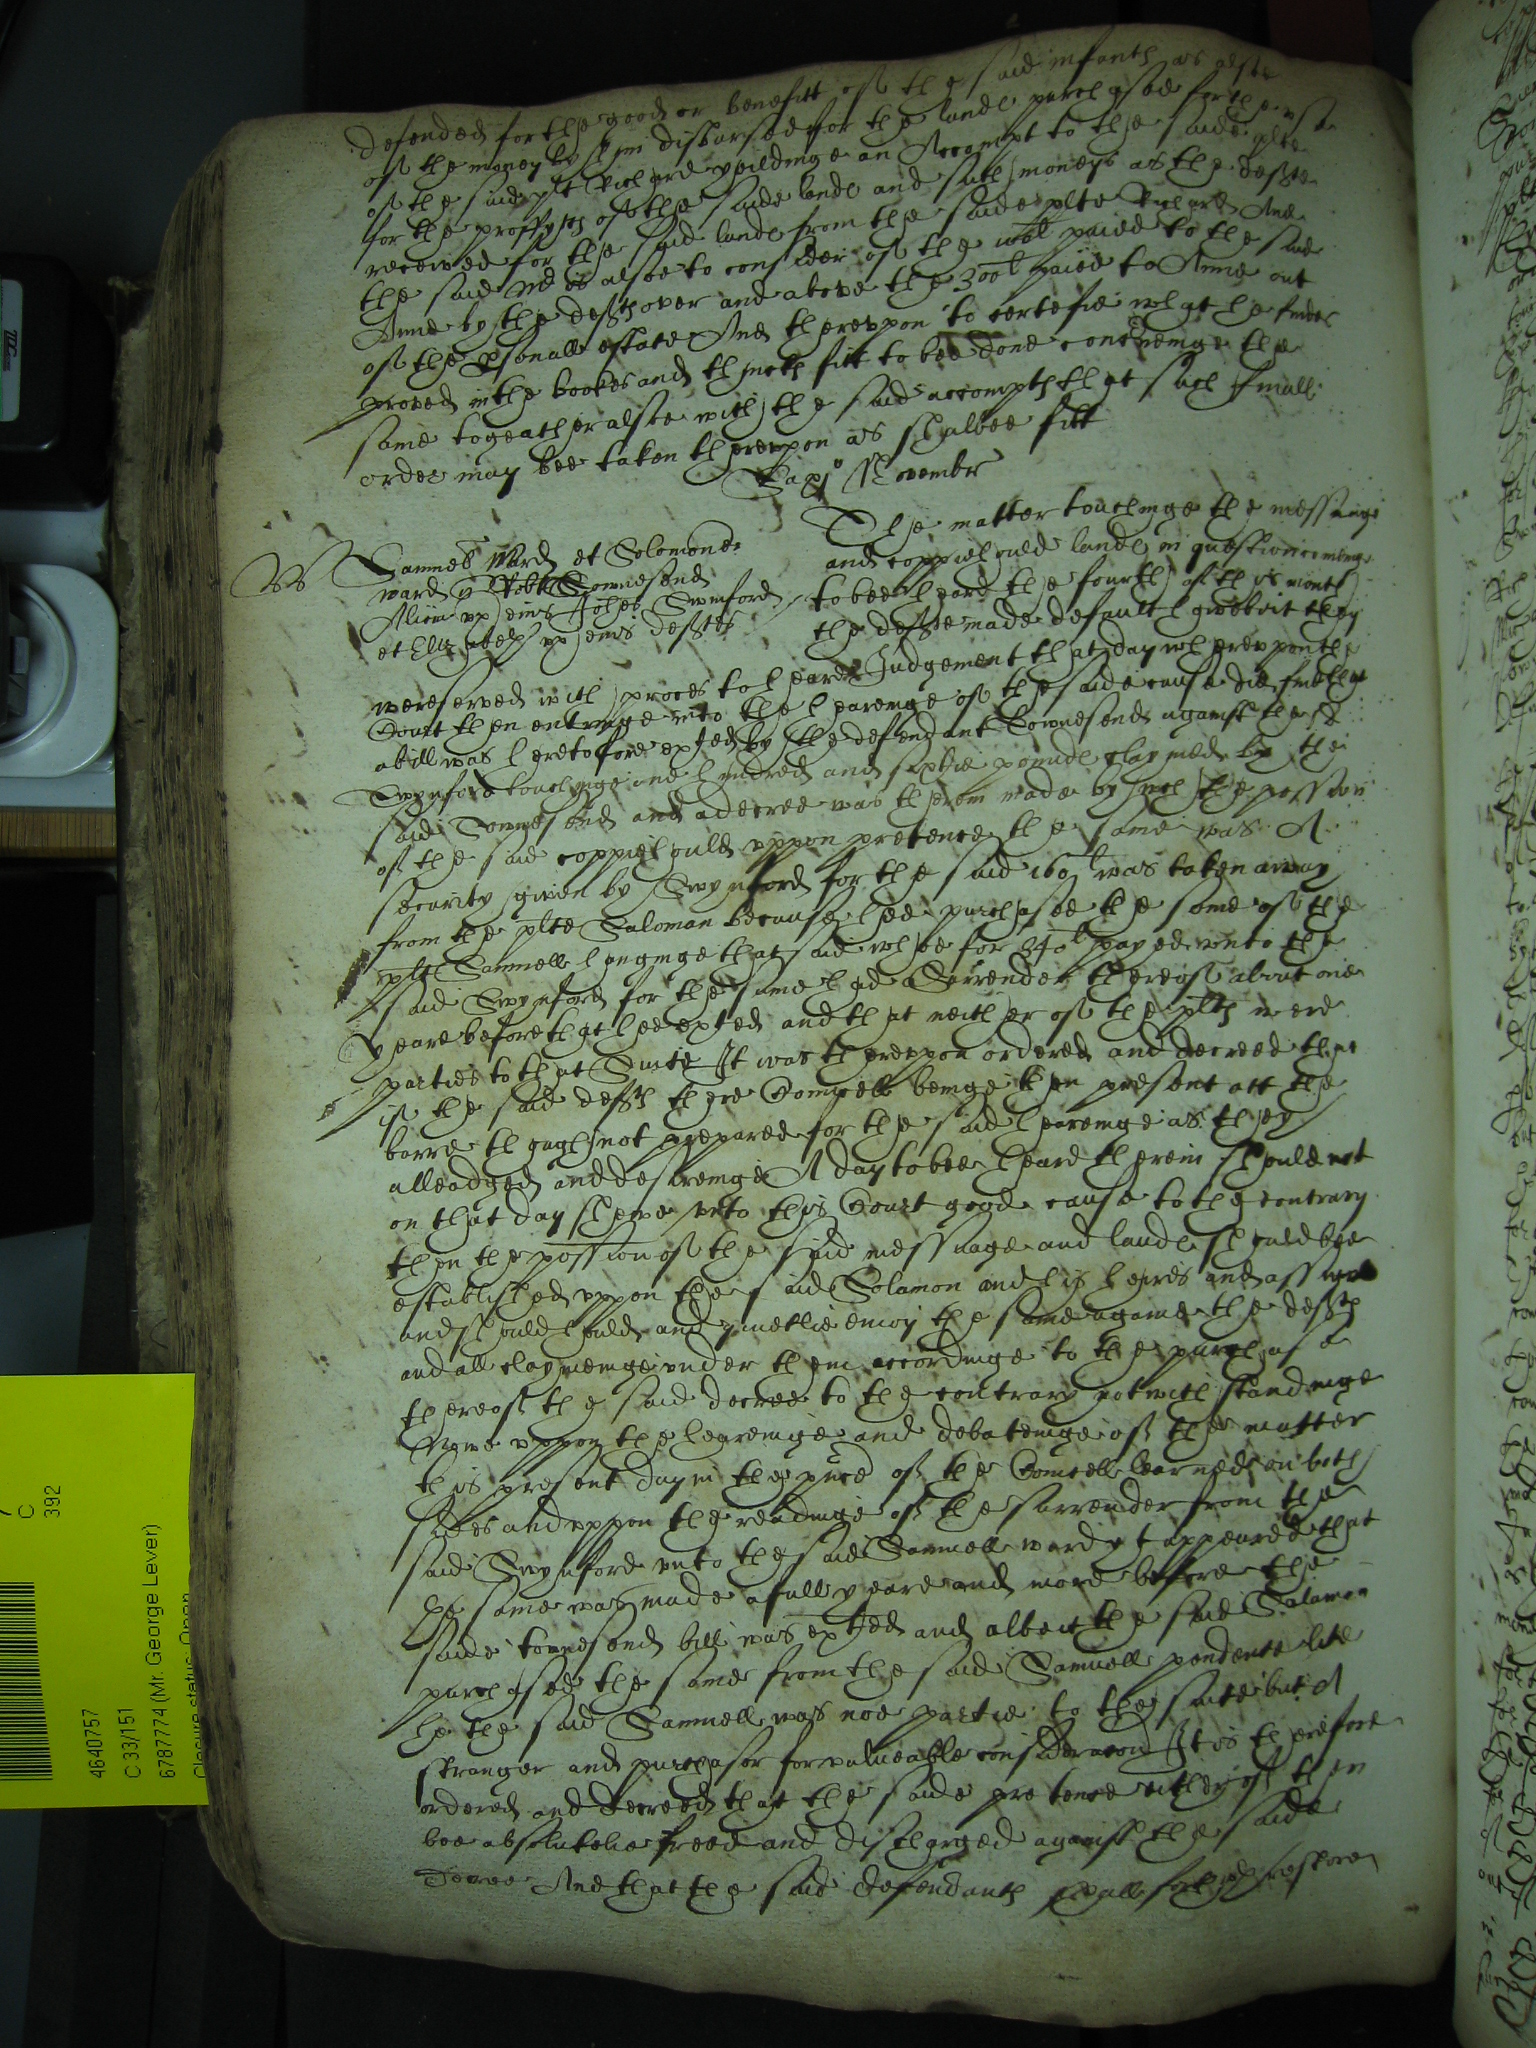 defended for the good or benefitt of the said infants as alsoe
of the money by him disbursed for the lands purchased for the use
of the said plt Richard yeildinge an Accompt to the saide plte
for the proffytts of the saide lands and such moneys as the defte
received for the said lands from the saide plte Richard And
the said Mr is alsoe to consider of the paied to the said
Anne by the defts over and above the 300l paied to Anne out
of the psonall estate And thereupon to certefie what he findes
proved in the bookes and thincks fitt to bee done concerninge the
same togeather alsoe with the said accompts that such finall
order may bee taken thereupon as shalbee fitt
Novembr
Samuel Ward et Solomone
ward Robte Townesend
uxor eius Swinford
et Elizabeth ux eius deftes
The matter touchinge the messuage
and coppiehould lands in question cominge
to bee heard the fourth of this month
the defte made default howbeit they
were served with proces to heare Judgement that day whereupon the
Court then entringe into the hearinge of the saide cause did finde that
a bill was heretofore exhted by the defendant Townesend against the sd
Swynford touchinge one hundred and sixtie pounds claymed by the
said Townesend and a decree was therein made by wch the possion
of the said coppiehould uppon pretence the same was A
security given by Swynford for the said 160l was taken away
from the plte Saloman because hee purchased the same of the
plte Samuell hanginge that suid whoe for 340l payed unto the
said Swynford for the same had a Surrender thereof about one
yeare before that hee exhted and that neither of the plts were
parties to that Suite It was thereuppon ordered and decreed that
if the said defts there Councell beinge then present att the
barre though not prepared for the said hearinge as they
alleadged and desiringe A day to bee heard therein should not
on that day shewe unto this Court good cause to the contrary
then the possion of the said messuage and lands should bee
established uppon the said Solamon and his heires and assignes
and should hould and quietlie enioy the same against the defts
and all claymeinge under them accordinge to the purchase
thereof the said decree to the contrary notwithstandinge
Nowe uppon the hearinge and debateinge of the matter
this present day in the pnce of the Councell learned on both
sides and uppon the readinge of the surrender from the
said Swynford unto the said Samuell ward yt appeared that
the same was made a full yeare and more before the
saide townesend bill was exhted and albeit the said Salamon
purchased the same from the said Samuell pendente lite
he the said Samuell was noe partie to the suite but A
stranger and purchasor for valueable consideracon It is therefore
ordered and decreed that the saide pretence either of them
bee absolutelie freed and discharged against the saide
decree And that the said defendants shall forthwth restore
4640757
C 33/151
6787774 (Mr. George Lever)
Closure status: Open
7
C
392